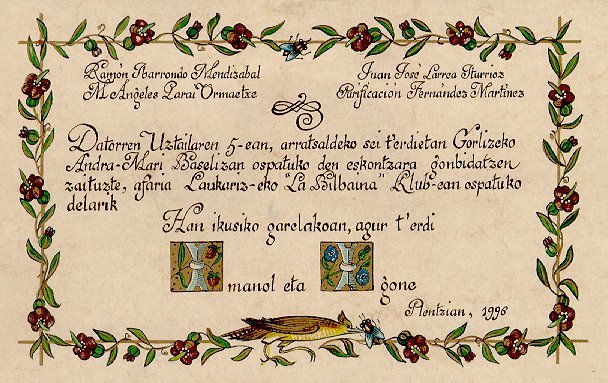 Ramón Ibarrondo Mendizabal
M Angeles Larai Ormaetxe
Juan José Larrea Iturrioz
Purificación Fernández Martínez
Datorren Uztailaren 5-ean, arratsaldeko sei t'erdietan Gorlizeko
Andra-Mari Baselizan ospatuko den eskontzara gonbidatzen
zaituzte, afaria Laukariz-eko "La Bilbaina" Klub-ean ospatuko
delarik
Han ikusiko garelakoan, agur t'erdi
I manol eta I gone
Plentzian, 1996